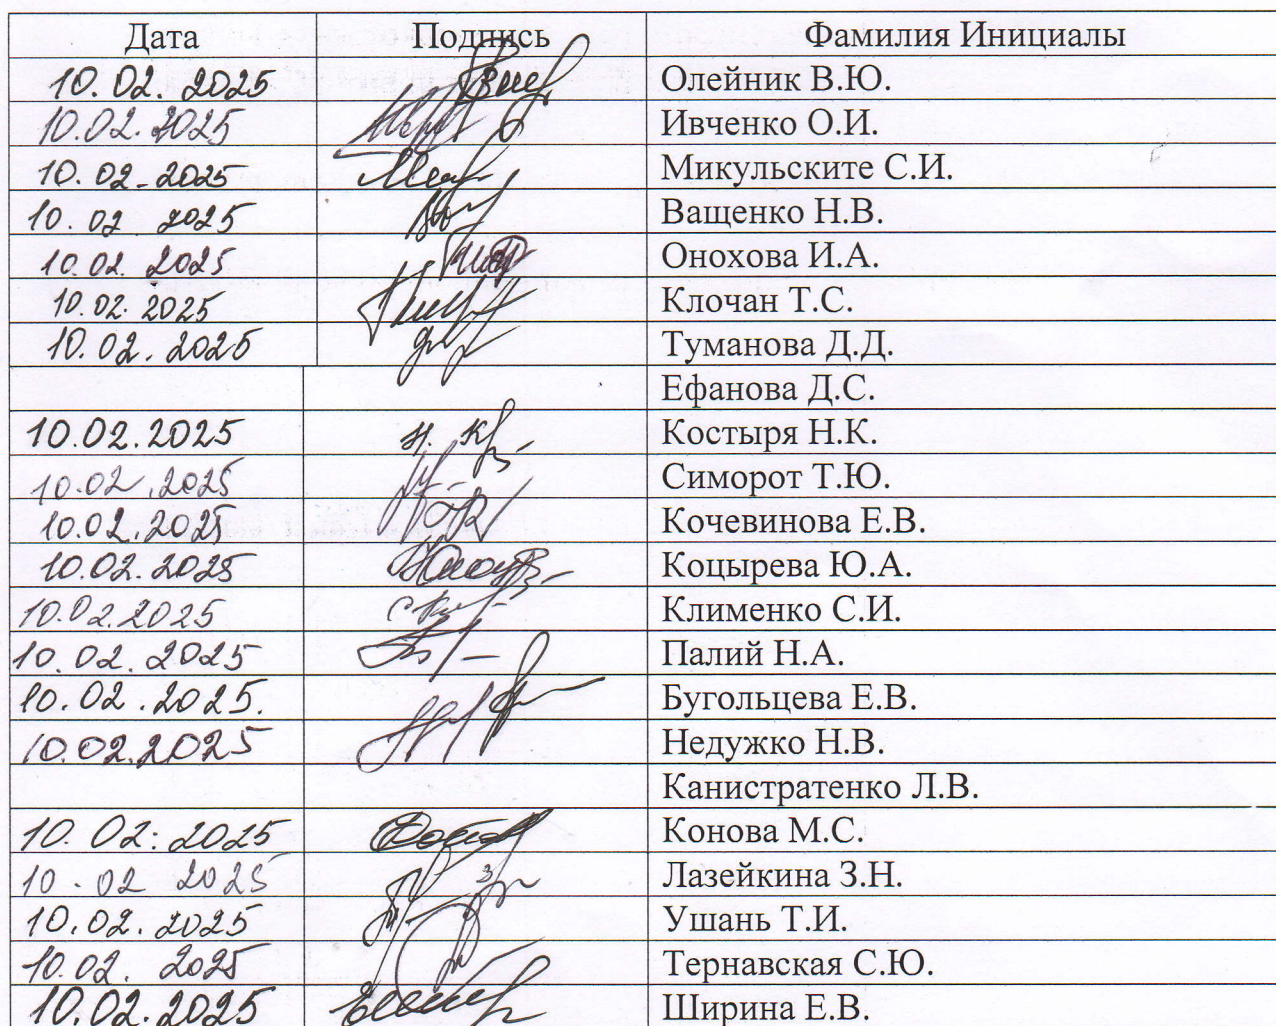 Дата Подпись Фамилия Инициалы
10.02.2025 Олейник В.Ю.
10.02.2025 Ивченко О.И.
10.02.2025 Микульските С.И.
10.02 2025 Ващенко Н.В.
10.02. 2025 Онохова И.А.
10.02.2025 Клочан Т.С.
10.02.2025 Туманова Д.Д.
Ефанова Д.С.
10.02.2025 Костыря Н.К.
10.02.2025 Симорот Т.Ю.
10.02.2025 Кочевинова Е.В.
10.02.2025 Коцырева Ю.А.
10.02.2025 Клименко С.И.
10.02.2025 Палий Н.А.
10.02.2025. Бугольцева Е.В.
10.02.2025 Недужко Н.В.
Канистратенко Л.В.
10.02.2025 Конова М.С.
10.02 2025 Лазейкина З.Н.
10.02.2025 Ушань Т.И.
10.02. 2025 Тернавская С.Ю.
10.02.2025 Ширина Е.В.